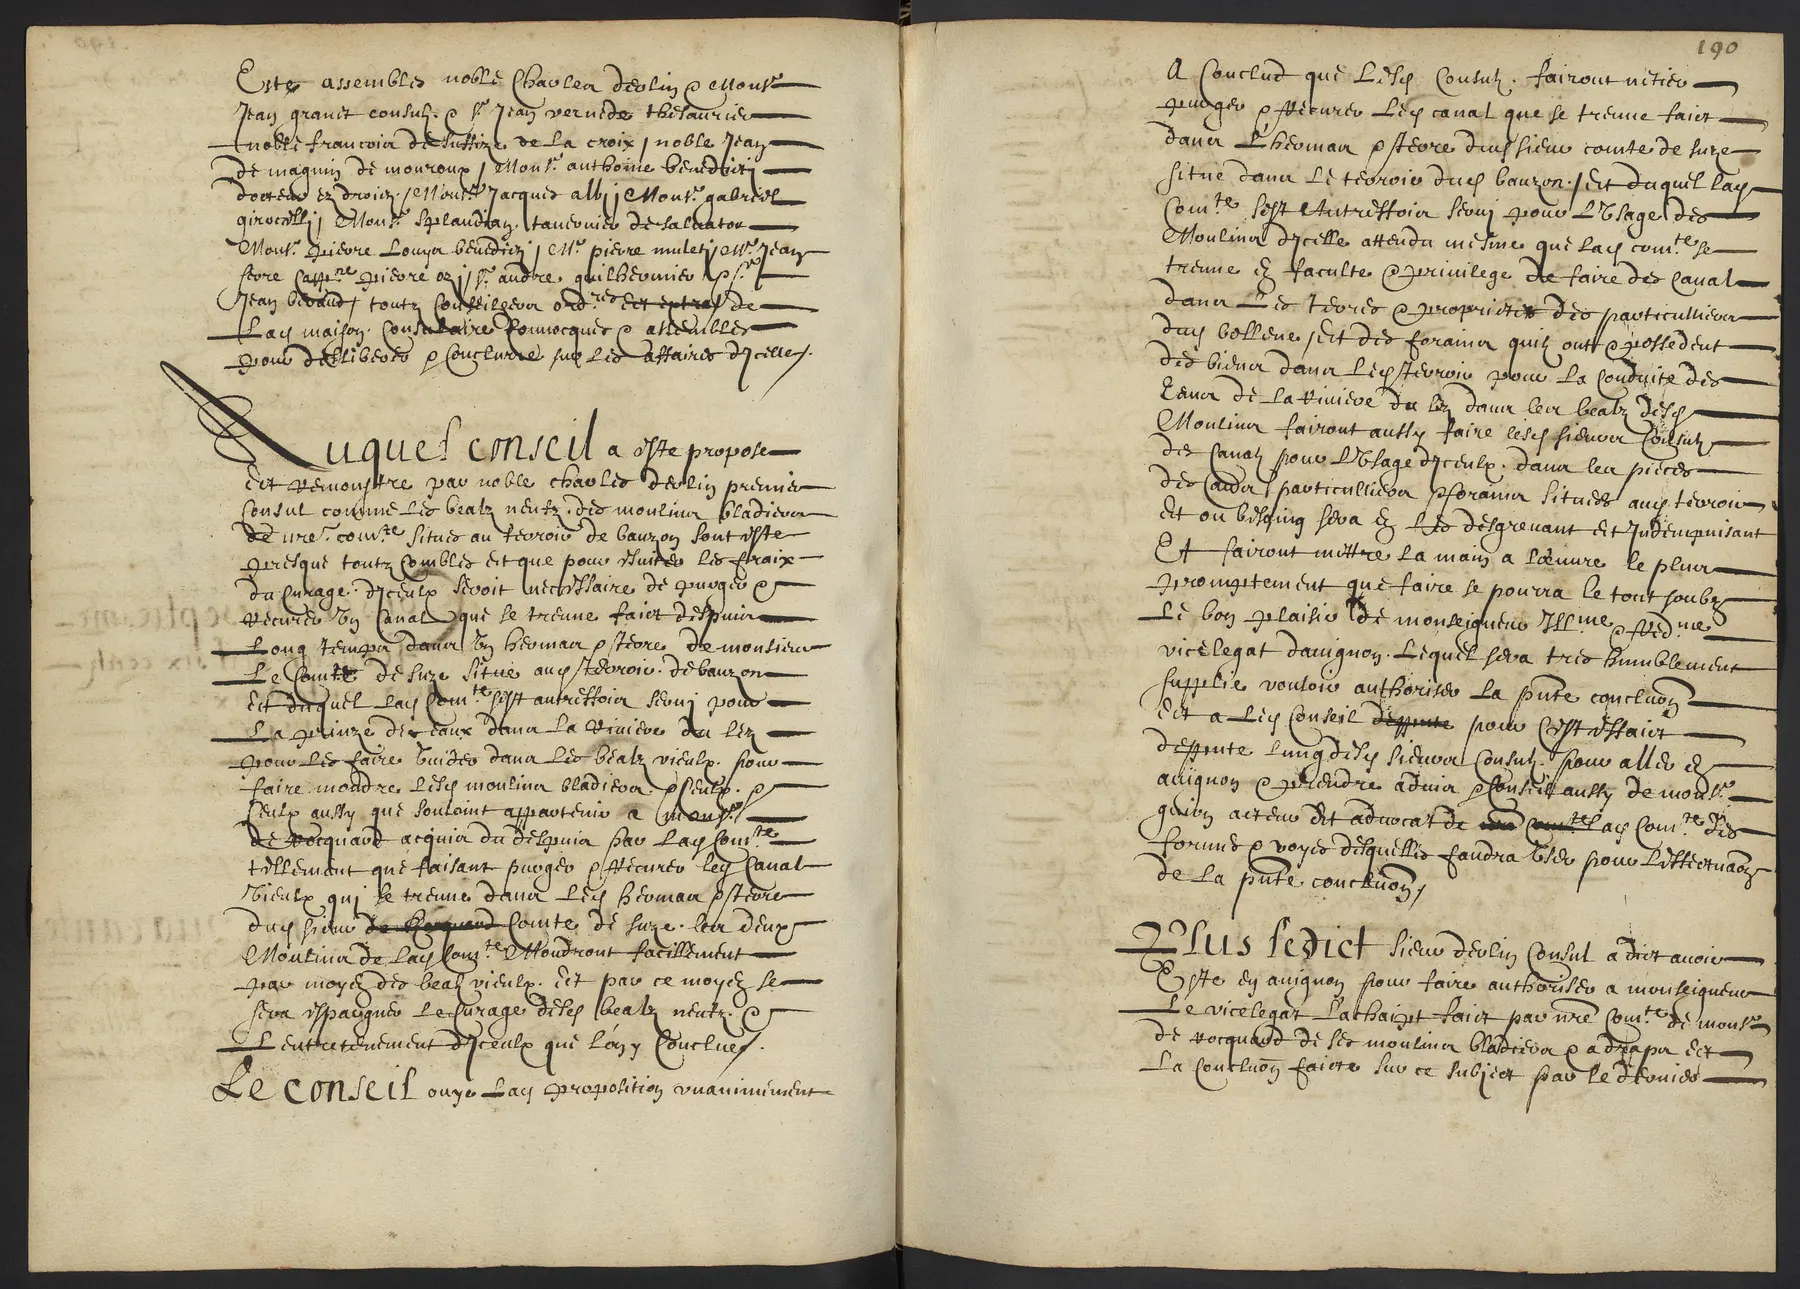 Este assembles noble Charles deulin & Monsr
Jean granet consulz & sr Jean vernede thesaurier
noble francois de Justize de la croix / noble Jean
de magnin de mouroux / Monsr anthoine benedicti
docteur ez droictz / Monsr Jacques albi / Monsr gabriel
girocelli / Monsr tauernier de saluator
Monsr pierre Louys benedicti / Mr pierre muleti / Mr Jean
fore Cappne pierre oz / sr andre guilhermier & sr
Jean beraud / toutz Conseilhers ordres et extras de
Lad maison Consulaire Conuocques & assembles
pour deslibeter & Conclurre sur les affaires dicelle /.
Auquel conseil a este propose
Et remonstre par noble charles deulin premier
Consul comme les bealz neufz des moulins bladiers
de nre comte situes au terroir de bauzon sont este
presque toutz combles et que pour euiter les fraix
du Curage diceulx seroit necessaire de purger &
recurer un Canal que se treuue faict despuis
Long temps dans un hermas & terre de monsieur
Le Comte de suze situe aud terroir de bauzon
Et duquel lad Comte sest autreffois serui pour
La prinze des eaux dans la riuiere du lez
pour les faire vuider dans les bealz vieulx pour
faire moudre lesd moulins bladiers
Ceulx aussy que souloint appartenir a monsr
de rocquard acquis du despuis par lad Comte
tellement que faisant purger & recurer led Canal
vieulx qui se treuue dans led hermas & terre
dud sieur de Rocquard Comte de suze les deux
Moulins de lad Comte Moudront facillement
par moyen des bealz vieulx Et par ce moyen se
sera espargner le Curage desd bealz neufz &
Lentretenement diceulx que lon y Conclue /.
Le conseil ouye Lad proposition unanimement
190
A Conclud que Lesd Consulz fairont netier
purger & recurer Led canal que se treuue faict
dans Lhermas & terre dud sieur comte de suze
situe dans le terroir dud bauzon / et duquel lad
Comte sest Autreffois serui pour Lusage des
Moulins dicelle attendu mesme que lad comte se
treuue en faculte & priuilege de faire des Canal
dans Les terres & proprietes des particulliers
dud bollene / et des forains quilz ont & possedent
des biens dans led terroir pour la Conduite des
Eaux de la riuiere du lez dans les bealz desd
Moulins fairont aussy faire lesd sieurs Consulz
des Canalz pour Lusage diceulx dans les pieces
des particulliers & forains situees aud terroir
Et ou besoing sera en les desgreuant et Indempnisant
Et fairont mettre la main a lœuure le plus
promptement que faire se pourra le tout soubz
Le bon plaisir de monseigneur Illme & Redme
vicelegat dauignon Lequel sera tres humblement
supplie vouloir authoriser la pnte concluon
Et a Led Conseil deppute pour Cest effaict
deppute lung desd sieurs Consulz pour aller en
auignon & prendre aduis & Conseil aussy de monsr
acteur et aduocat de lad Comte des
formes & voyes desquelles faudra user pour Leffectuaon
de la pnte concluon /
Plus ledict sieur deulin Consul a dict auoir
Este en auignon pour faire authoriser a monseigneur
Le vicelegat Lachaipt faict par nre Comte de monsr
de rocquard de ses moulins bladiers & a drapz Et
La Concluon faicte sur ce subject par le dernier